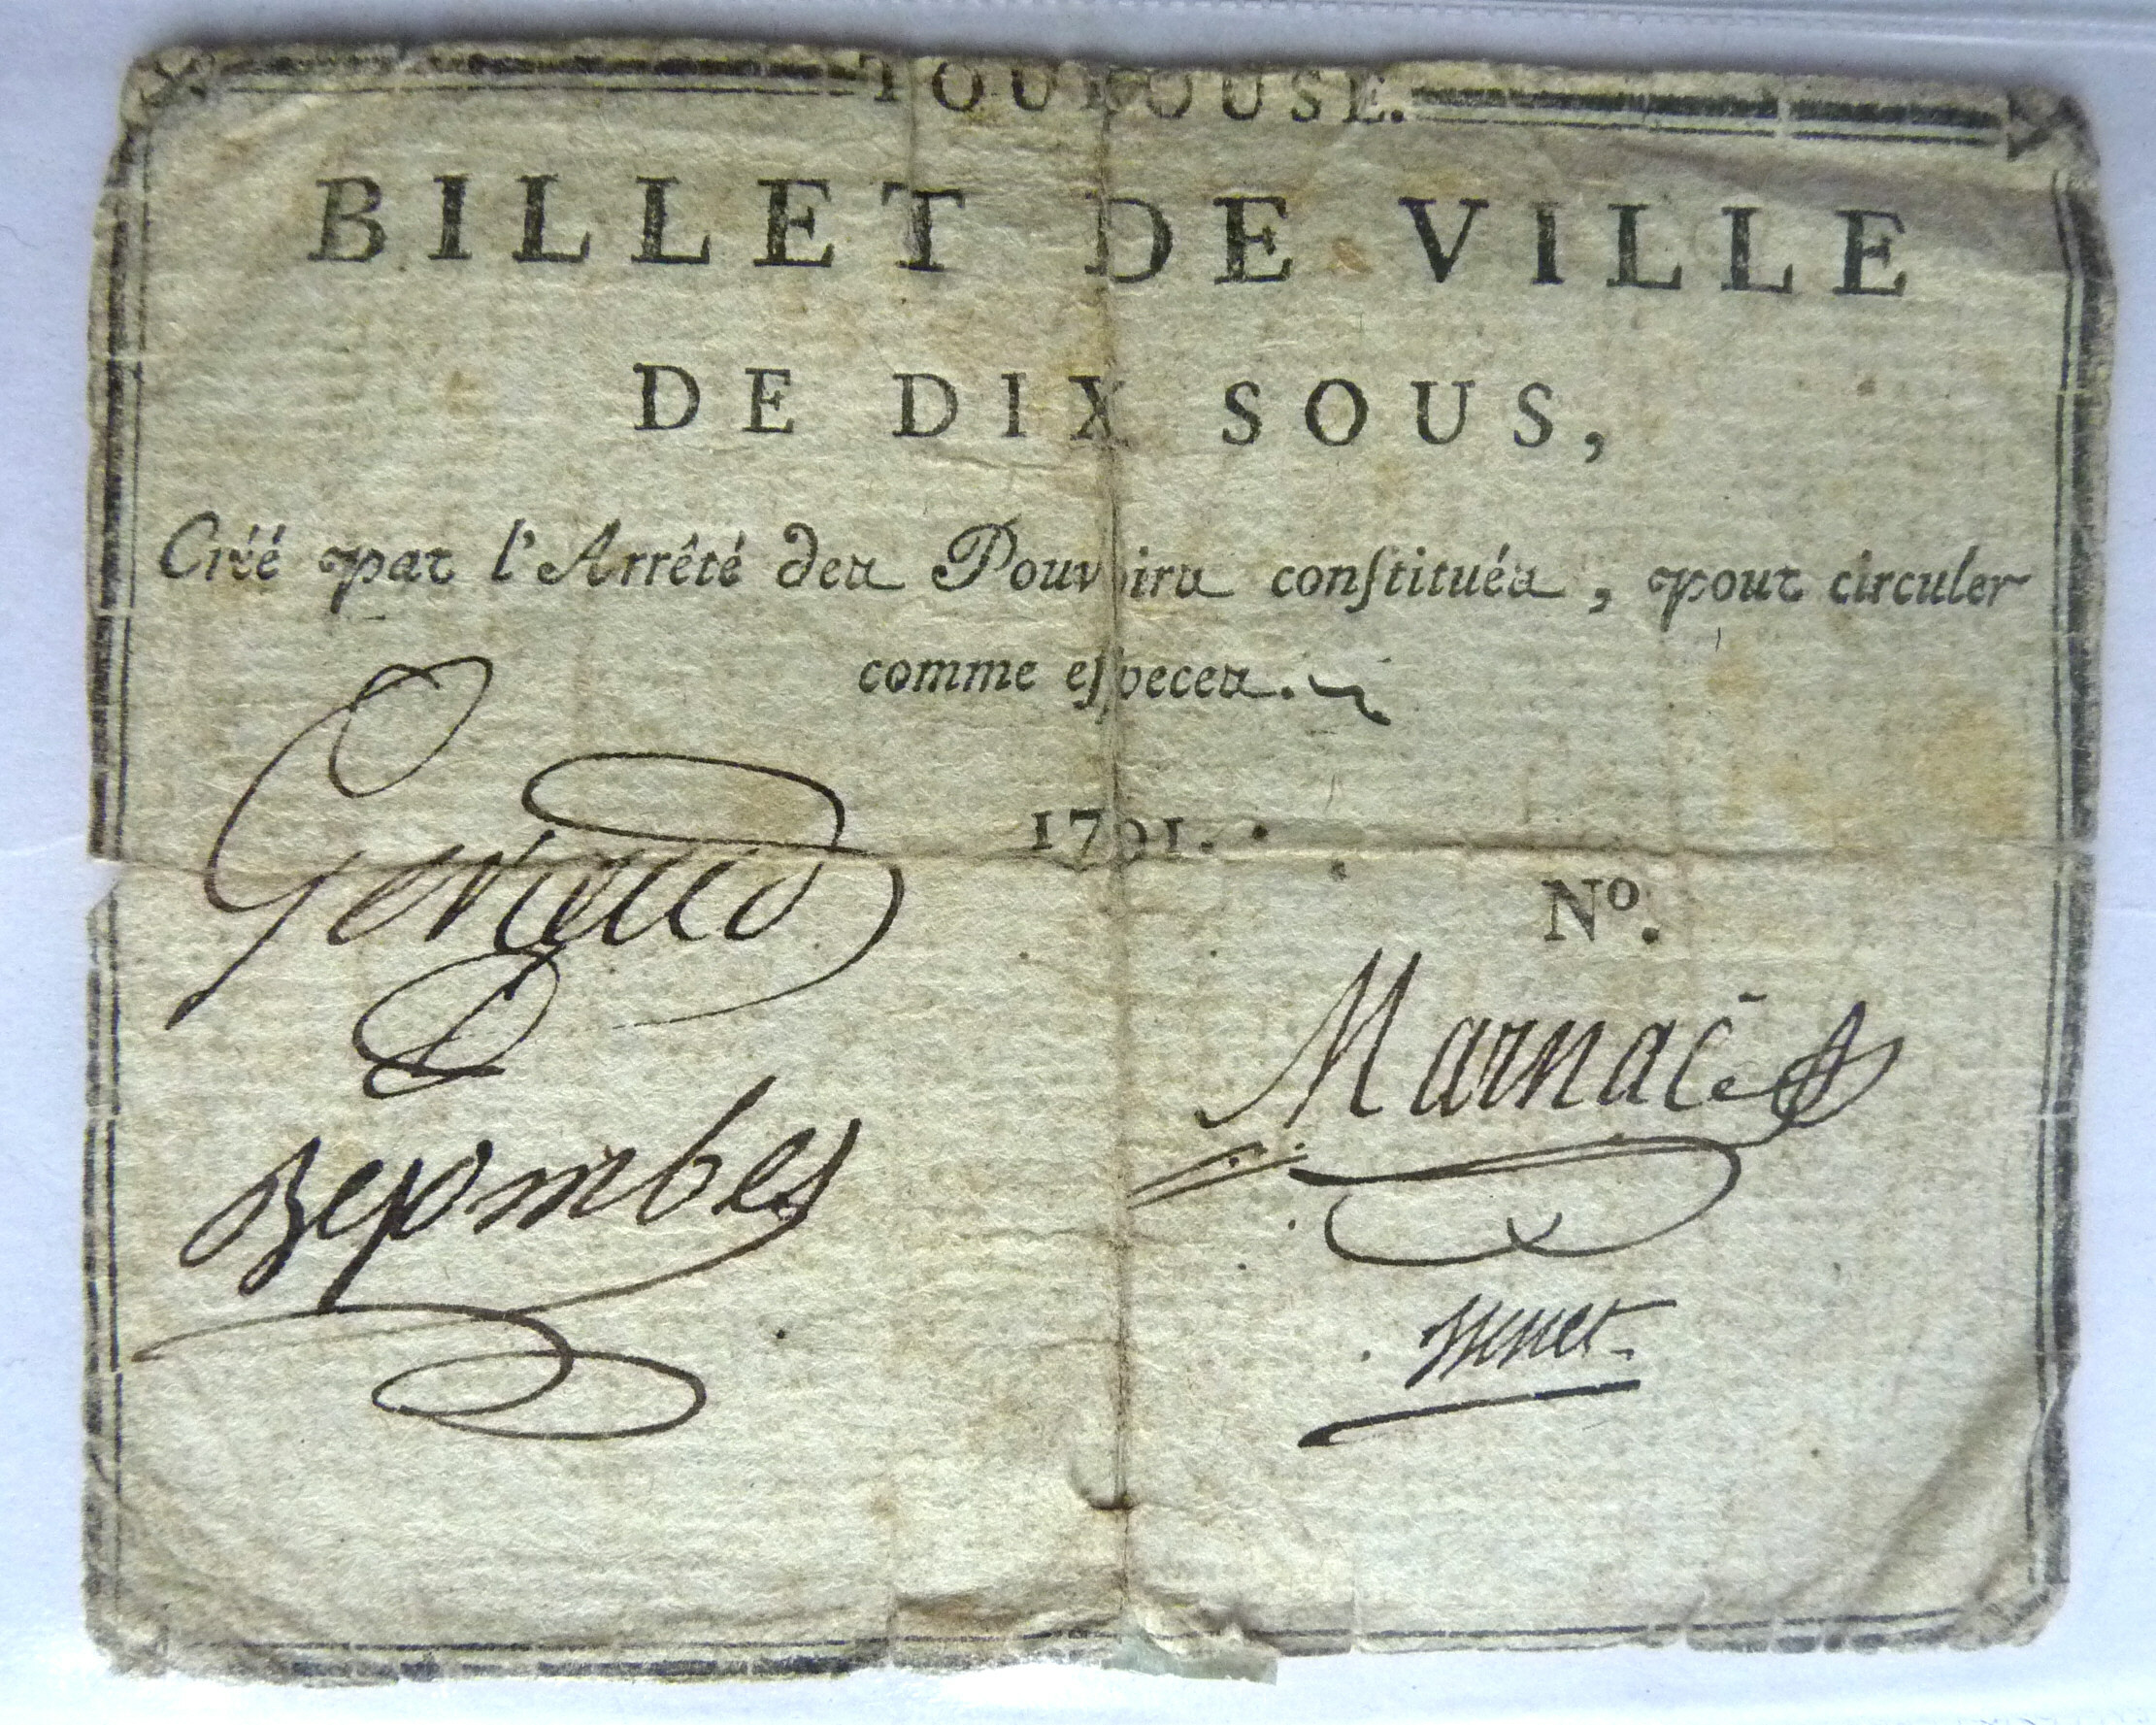 TOULOUSE.
BILLET DE VILLE
DE DIX SOUS,
Créé par l'Arrêté des Pouvoirs constitués, pour circuler
comme especes.
1791.
Nº.
Marnac